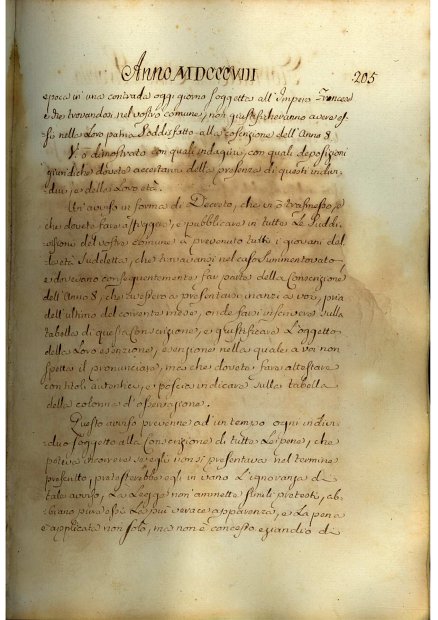 Anno MDCCCVIII 205
epoca in una contrada oggi giorno soggetta all'Impero Francese
e che trovandosi nel vostro comune, non giustificheranno avere es-
so nella Loro patria soddisfatto alla coscrizione dell'Anno 8.
Vi ò dimostrato con quali indagini, con quali deposizioni
giuridiche dovete accertarvi della presenza di questi indivi-
dui, e della Loro età.
Un avviso in forma di Decreto, che vi ò trasmesso, e
che dovete fare affiggere, e pubblicare in tutte Le Suddi-
visioni del vostro comune à prevenuto tutti i giovani del-
la età Suddetta, che trovavansi nel caso summentovato,
e dovevano conseguentemente far parte della Conscrizione
dell'Anno 8, che avessero a presentarsi inanzi a voi, pria
dell'ultimo del corrente mese, onde farsi inscrivere sulla
tabella di questa Conscrizione, e giustificare L'oggetto
della Loro esenzione, esenzione nella quale a voi non
spetta il pronunciare, ma che dovete fare attestare
con titoli autentici, e poscia indicare sulla tabella
della colonna d'osservazione.
Questo avviso prevenne ad un tempo ogni indivi-
duo soggetto alla Conscrizione di tutte Le pene, che
poteva incorrere se egli non si presentava nel termine
prescritto, protesterebbe egli in vano L'ignoranza di
tale avviso, La Legge non ammette simili proteste, ab-
biano pur esse La più verace apparenza, e La pena
è applicata non solo, ma non è concesso eziandio di